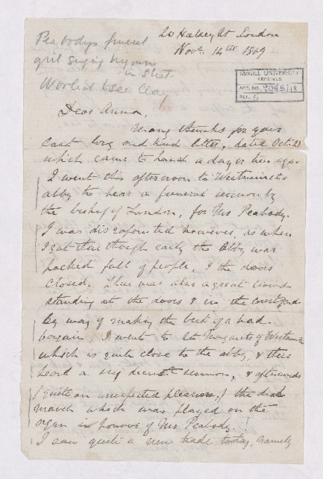 Peabodys funeral
girl singing hymns
in Street
London
Nov. 14th 1869
McGILL UNIVERSITY
ARCHIVES
ACC. NO.
REF.
Dear Anna,
Many thanks for your
last long and kind letter, dated Oct
which came to hand a day or two ago.
I went this afternoon to Westminster
abby to hear a funeral sermon by
the bishop of London, for Mr Peabody.
I was disappointed however, as when
I got there though early the Abby was
packed full of people, & the doors
closed. There was also a great crowd
standing at the doors & in the courtyard
By way of making the best of a bad
bargain I went to St Margarets of Westminster
which is quite close to the abby, & there
heard a very decent sermon, & afterwards
(quite an unexpected pleasure,) the dead
march which was played on the
organ in honour of Mr Peabody.
I saw quite a new trade today, namely